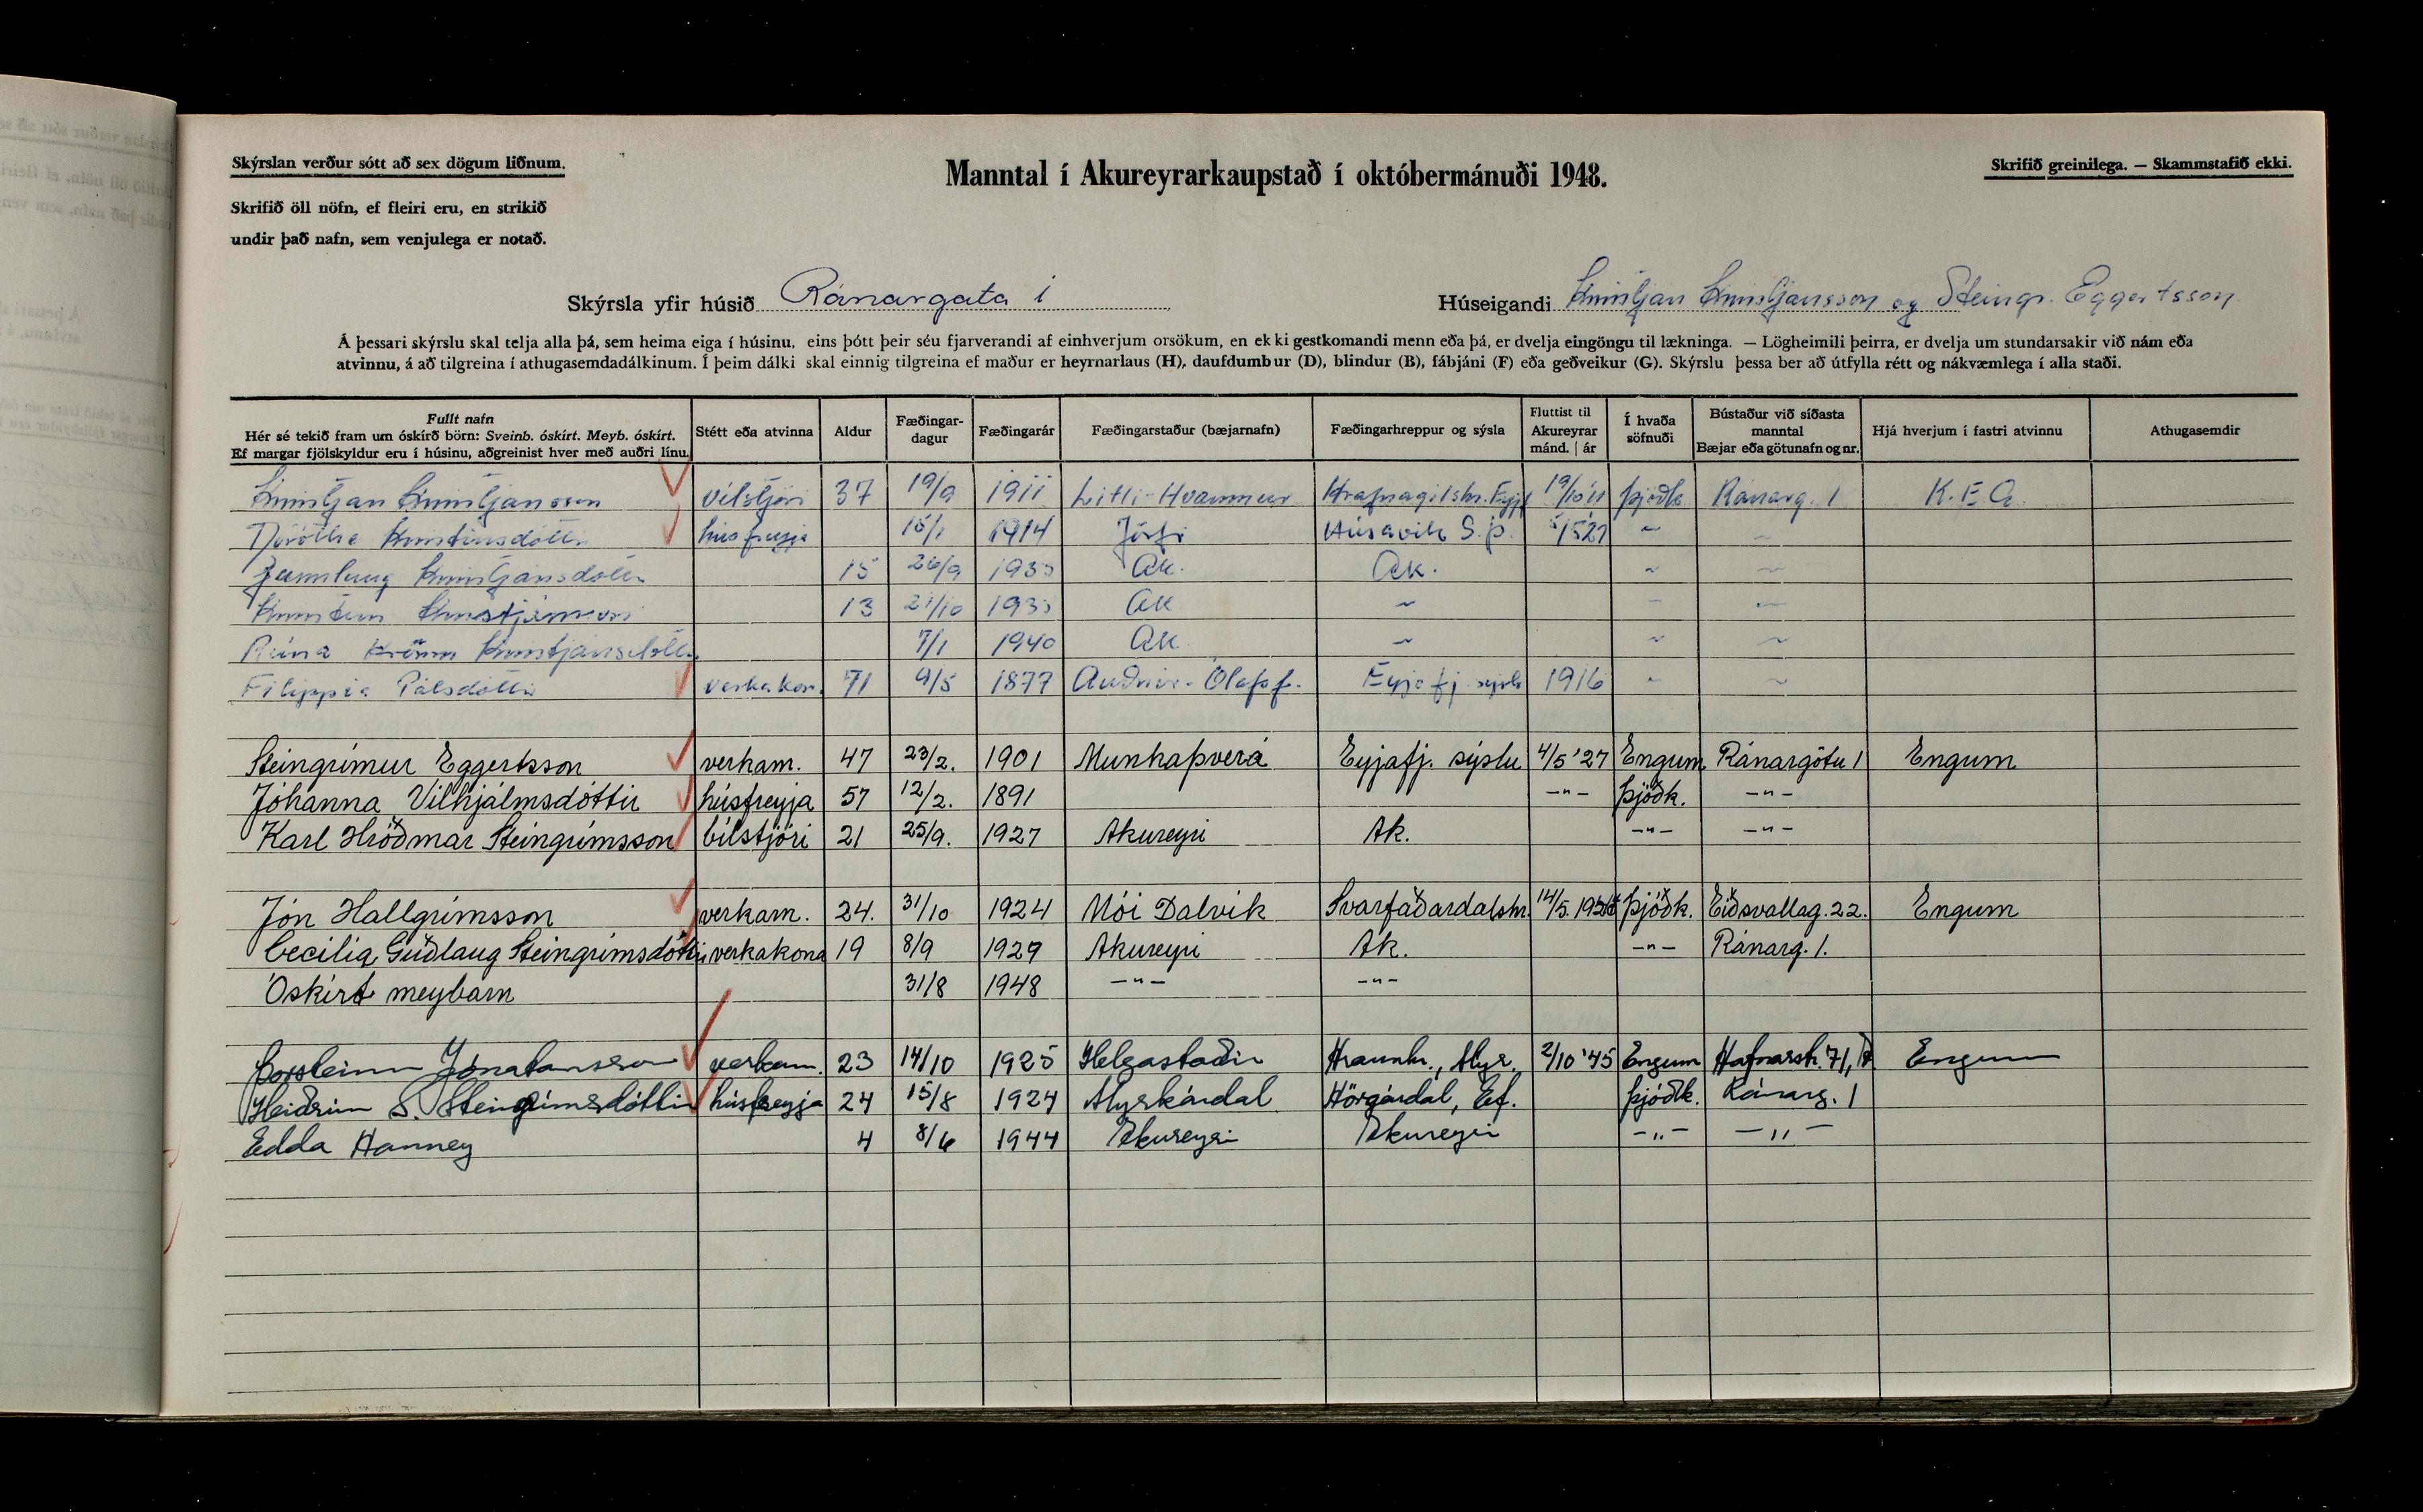 Skýrslan verður sótt að sex dögum liðnum.
Skrifið öll nöfn, ef fleiri eru, en strikið
undir það nafn, sem venjulega er notað.
Manntal í Akureyrarkaupstað í októbermánuði 1948.
Skrifið greinilega. — Skammstafið ekki.
Skýrsla yfir húsið Ránargata 1
Húseigandi Kristján Kristjánsson og Steingr. Eggertsson
Á þessari skýrslu skal telja alla þá, sem heima eiga í húsinu, eins þótt þeir séu fjarverandi af einhverjum orsökum, en ekki gestkomandi menn eða þá, er dvelja eingöngu til lækninga. — Lögheimili þeirra, er dvelja um stundarsakir við nám eða
atvinnu, á að tilgreina í athugasemdadálkinum. Í þeim dálki skal einnig tilgreina ef maður er heyrnarlaus (H), daufdumbur (D), blindur (B), fábjáni (F) eða geðveikur (G). Skýrslu þessa ber að útfylla rétt og nákvæmlega í alla staði.
Fullt nafn
Hér sé tekið fram um óskírð börn: Sveinb. óskírt. Meyb. óskírt.
Ef margar fjölskyldur eru í húsinu, aðgreinist hver með auðri línu.
Stétt eða atvinna
Aldur
Fæðingar-
dagur
Fæðingarár
Fæðingarstaður (bæjarnafn)
Fæðingarhreppur og sýsla
Fluttist til
Akureyrar
mánd. | ár
Í hvaða
söfnuði
Bústaður við síðasta
manntal
Bæjar eða götunafn og nr.
Hjá hverjum í fastri atvinnu
Athugasemdir
Kristján Kristjánsson vilstjóri 37 19/9 1911 Litli-Hvammur Hrafnagilshr. Eyjf 19/10 '11 þjóðk Ránarg. 1 K.E.A.
Dóróthea Kristinsdóttir húsfreyja 15/1 1914 Jörfi Húsavík S.þ. ~ ~
Kristjánsdóttir 15 26/9 1933 Ak. Ak. ~ ~
Kristinn Kristjánsson 13 21/10 1935 Ak ~ ~ ~
Kristjánsdóttir 7/1 1940 Ak. ~ ~ ~
Filippía Pálsdóttir verkakon. 71 9/5 1877 Ólafsf. Eyjafj. sýsla 1916 ~ ~
Steingrímur Eggertsson verkam. 47 23/2. 1901 Munkaþverá Eyjafj. sýslu 4/5 '27 Engum Ránargötu 1 Engum
Jóhanna Vilhjálmsdóttir húsfreyja 57 12/2. 1891 -"- Þjóðk. -"-
Karl Hróðmar Steingrímsson bílstjóri 21 25/9. 1927 Akureyri Ak. -"- -"-
Jón Hallgrímsson verkam. 24. 31/10 1924 Mói Dalvík Svarfaðardalshr. Þjóðk. Eiðsvallag. 22. Engum
Cecilia Guðlaug Steingrímsdóttir verkakona 19 8/9 1929 Akureyri Ak. -"- Ránarg. 1.
Óskírt meybarn 31/8 1948 -"- -"-
Þorsteinn Jónatansson verkam. 23 14/10 1925 Helgastaðir Hraunhr., Mýr. 2/10 '45 Engum Hafnarstr. 71, Engum
Heiðrún S. Steingrímsdóttir húsfreyja 24 15/8 1924 Myrkárdal Hörgárdal, Ef. Þjóðk. Ránarg. 1
Edda Hanney 4 8/6 1944 Akureyri Akureyri -"- -"-